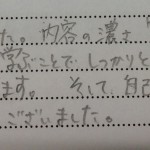 た。内容の濃さ
学ぶことで、しっかりと
ます。 そして、自己
ございました。